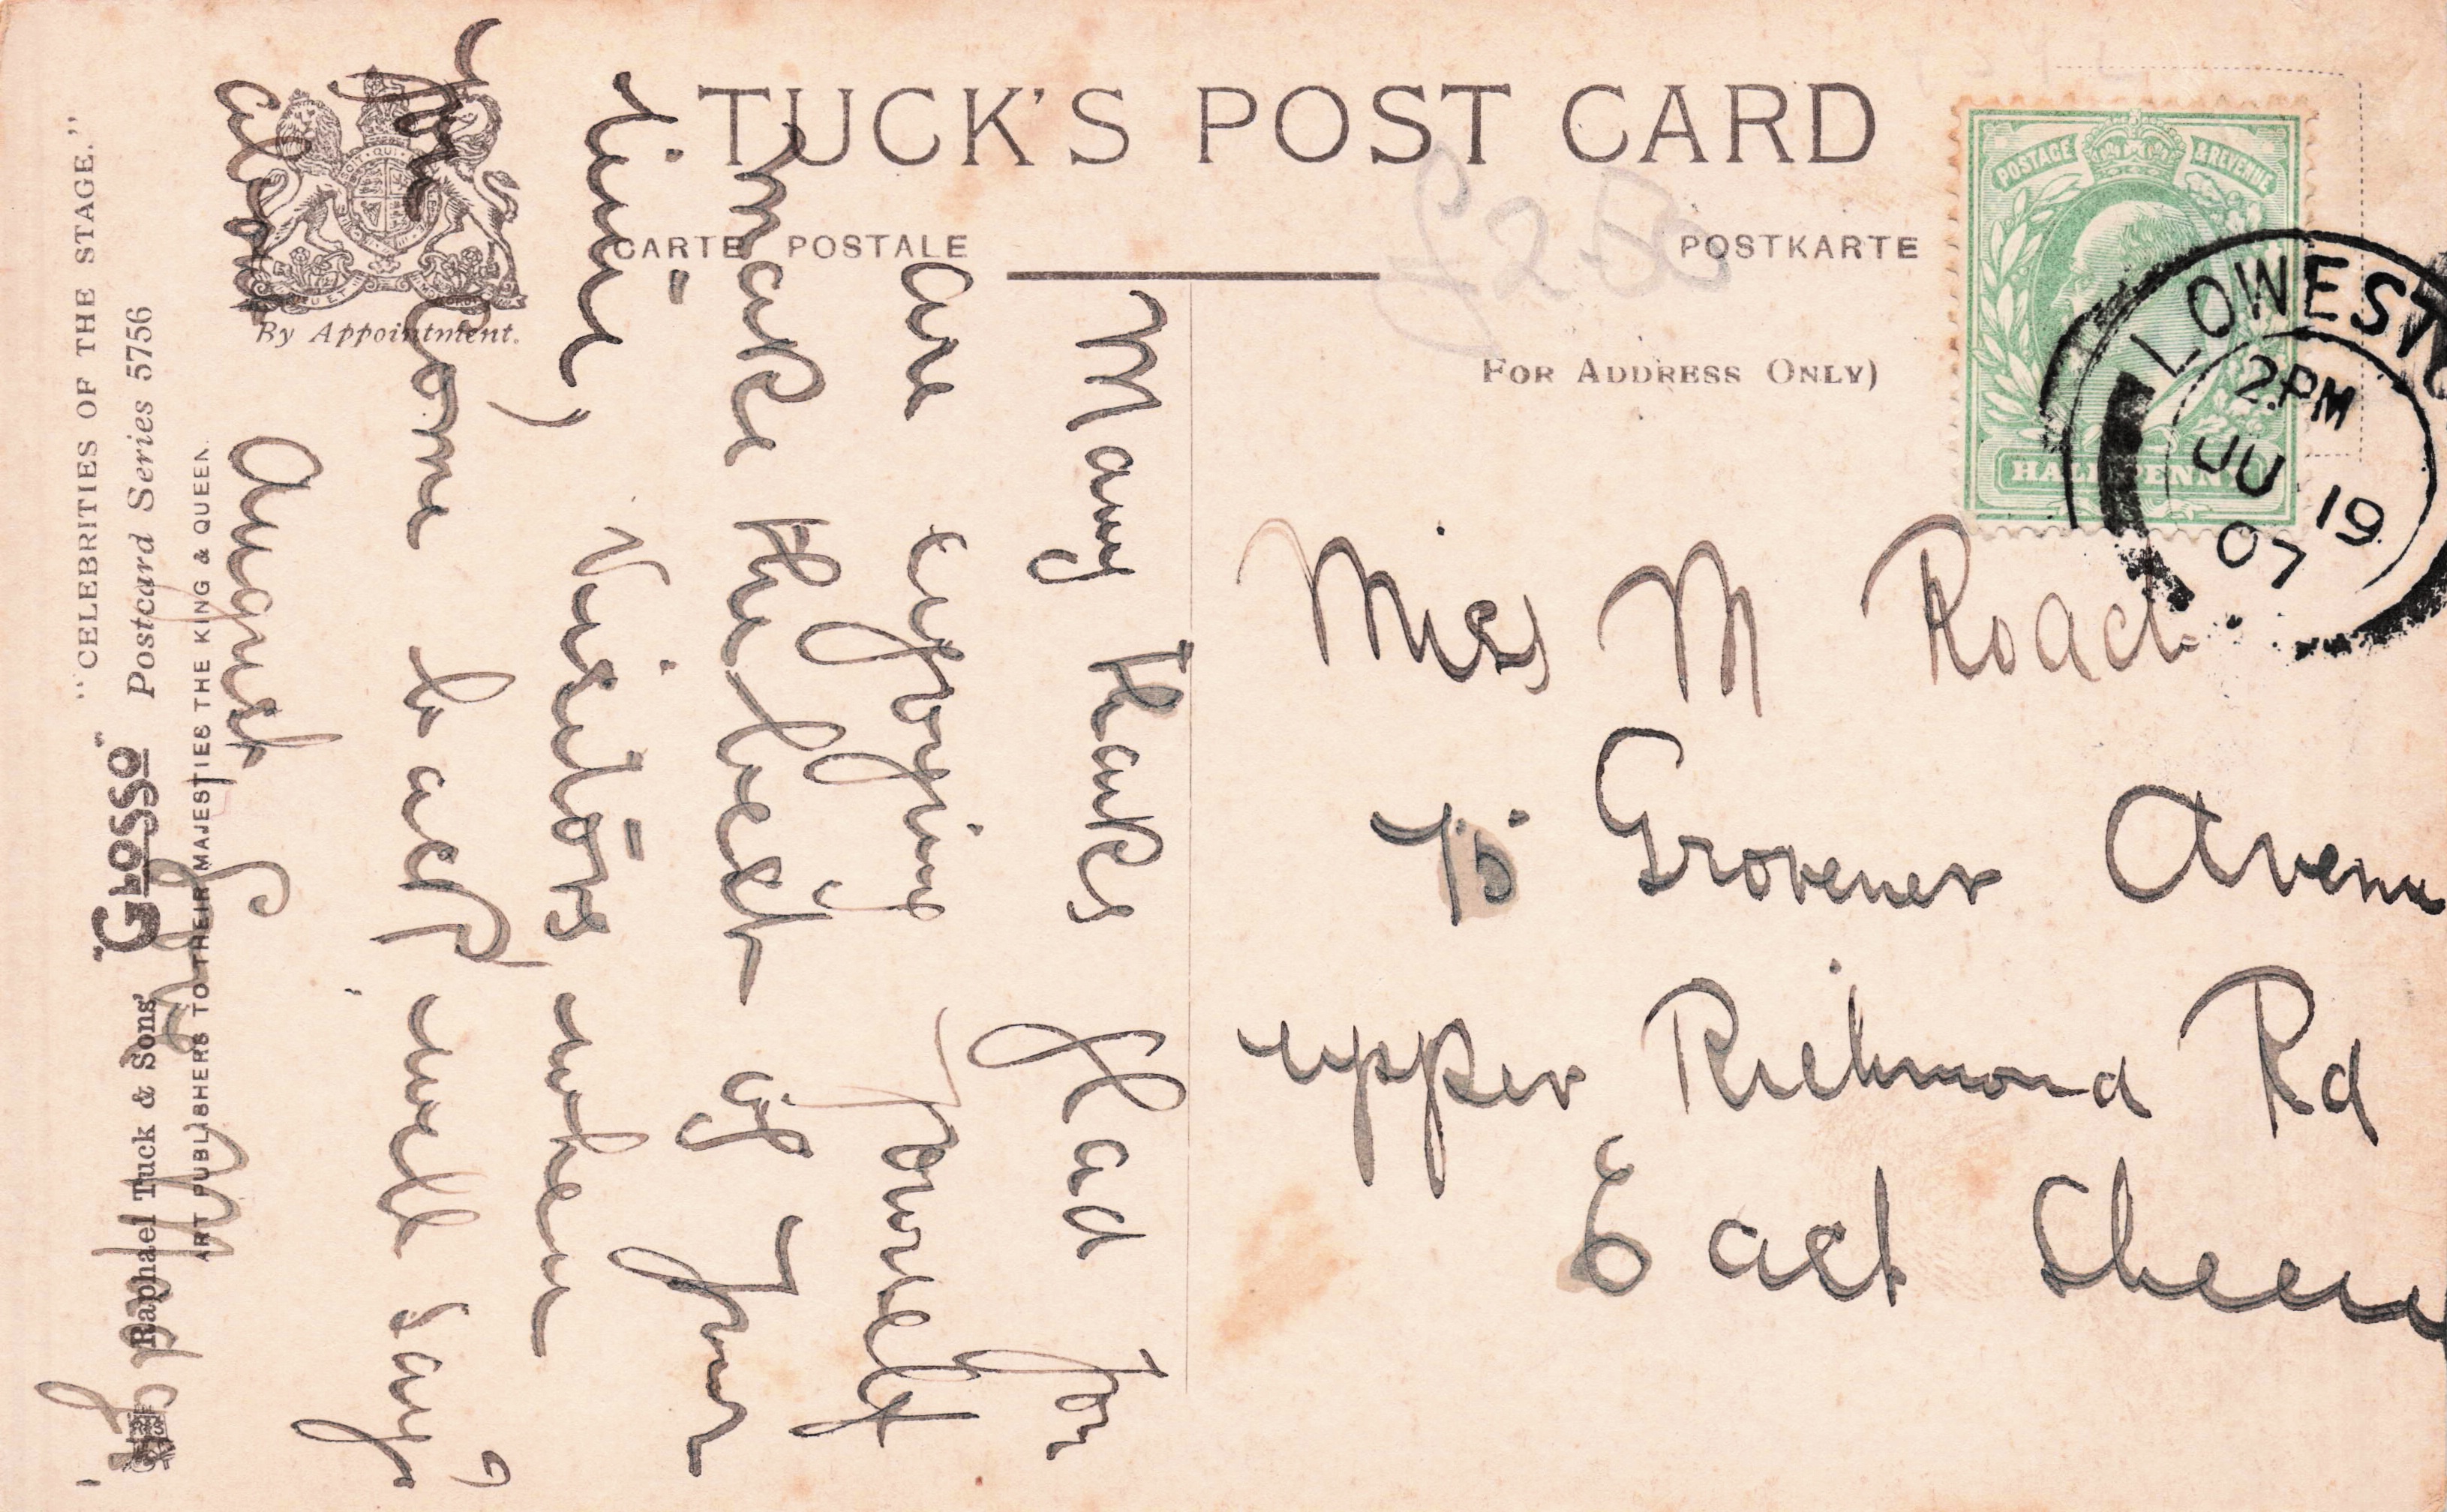 TUCK'S POST CARD
CARTE POSTALE
POSTKARTE
FOR ADDRESS ONLY)
By Appointment.
POSTAGE & REVENUE
HALF PENNY
LOWESTO
2.PM
JU 19
07
£2-50
Miss M Roach
75 Grovener Avenu
upper Richmond Rd
East Sheen
Many thanks Glad you
are enjoying yourself
make the best of your
time, Visitors when
come to will say
about August
"CELEBRITIES OF THE STAGE."
Raphael Tuck & Sons' "GLOSSO" Postcard Series 5756
ART PUBLISHERS TO THEIR MAJESTIES THE KING & QUEEN.